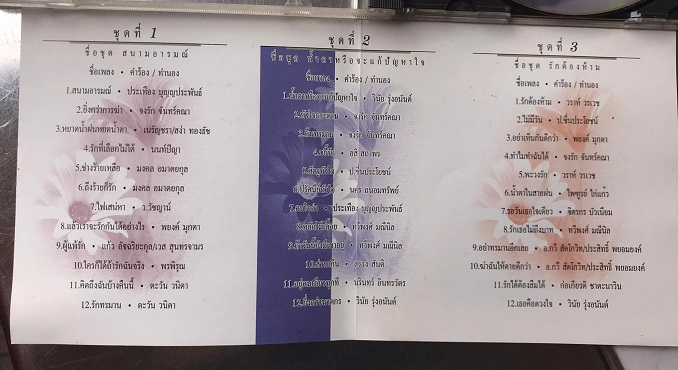 ชุดที่ 1
ชื่อชุด สนามอารมณ์
ชื่อเพลง • คำร้อง / ทำนอง
1.สนามอารมณ์ • ประเทือง บุญญประพันธ์
2.ยิ่งกว่าการฆ่า • จงรัก จันทร์คณา
3.หยาดน้ำฝนหยดน้ำตา • เนรัญชรา/สง่า ทองธัช
4.รักที่เลือกไม่ได้ • นนท์ปัญา
5.ช่างร้ายเหลือ • มงคล อมาตยกุล
6.ถึงร้ายก็รัก • มงคล อมาตยกุล
7.ไฟเสน่หา • ว.วัชญาน์
8.แล้วเราจะรักกันได้อย่างไร • พยงค์ มุกดา
9.ผู้แพ้รัก • แก้ว อัจฉริยะกุล/เวส สุนทรจามร
10.ใครก็ได้ถ้ารักฉันจริง • พรพิรุณ
11.คิดถึงฉันบ้างคืนนี้ • ตะวัน วนิดา
12.รักทรมาน • ตะวัน วนิดา
ชุดที่ 2
หรือจะแก้ปัญหาใจ
ชื่อเพลง • คำร้อง / ทำนอง
วินัย รุ่งอนันต์
จงรัก จันทร์คณา
จงรัก จันทร์คณา
ป.ชื่นประโยชน์
นคร ถนอมทรัพย์
ประเทือง บุญญประพันธ์
ทวีพงศ์ มณีนิล
ทวีพงศ์ มณีนิล
สันติ
นรินทร์ อินทรวัตร
วินัย รุ่งอนันต์
ชุดที่ 3
ชื่อชุด รักต้องห้าม
ชื่อเพลง • คำร้อง / ทำนอง
1.รักต้องห้าม • วราห์ วรเวช
2.ไม่มีวัน • ป.ชื่นประโยชน์
3.อย่าเห็นกันดีกว่า • พยงค์ มุกดา
4.ทำไมทำฉันได้ • จงรัก จันทร์คณา
5.พะวงรัก • วราห์ วรเวช
6.น้ำตาในสายฝน • ไพฑูรย์ ไก่แก้ว
7.รอวันเธอใจเดียว • จิตรกร บัวเนียม
8.รักเธอไม่ถึงบาท • ทวีพงศ์ มณีนิล
9.อย่าทรมานอีกเลย • อ.กวี สัตโกวิท/ประสิทธิ์ พยอมยงค์
10.ฆ่าฉันให้ตายดีกว่า • อ.กวี สัตโกวิท/ประสิทธิ์ พยอมยงค์
11.รักได้ต้องลืมได้ • ก่อเกียรติ ชาตะนาวิน
12.เธอคือดวงใจ • วินัย รุ่งอนันต์